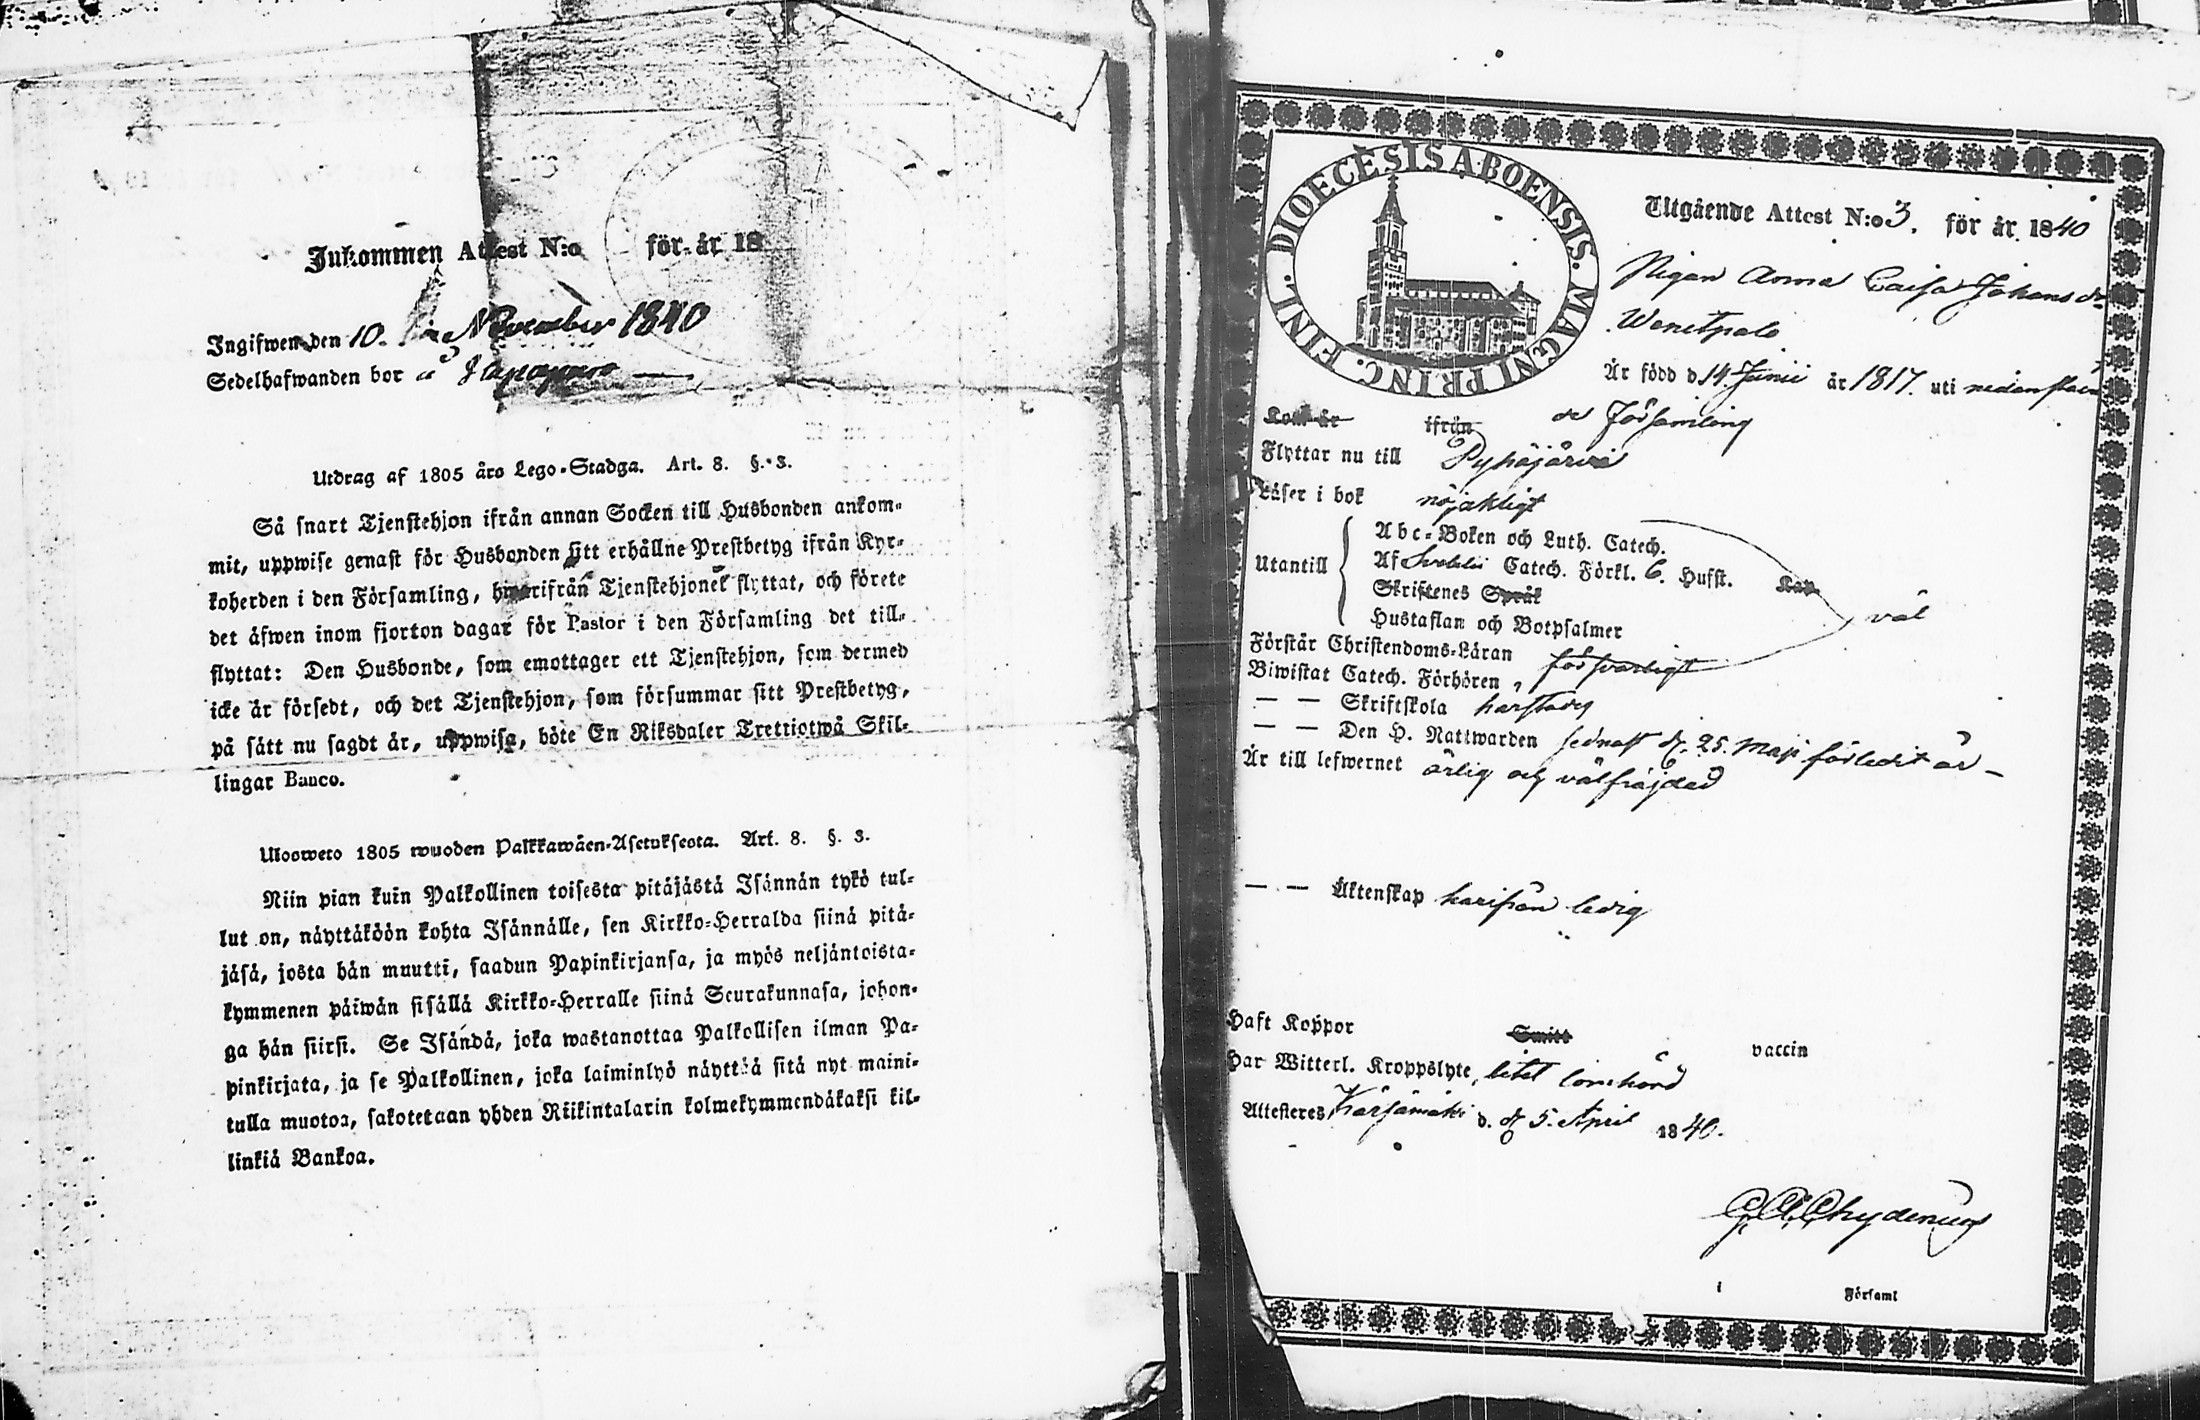 Inkommen Attest N:o för år 18
Ingifwen den 10. November 1840
Sedelhafwanden bor å
Utdrag af 1805 års Lego-Stadga. Art. 8. §. 3.
Så snart Tjenstehjon ifrån annan Socken till Husbonden ankom-
mit, uppwise genast för Husbonden sitt erhållne Prestbetyg ifrån Kyr-
koherden i den Församling, hwarifrån Tjenstehjonet flyttat, och förete
det äfwen inom fjorton dagar för Pastor i den Församling det till-
flyttat: Den Husbonde, som emottager ett Tjenstehjon, som dermed
icke är försedt, och det Tjenstehjon, som försummar sitt Prestbetyg,
på sätt nu sagdt är, uppwisa, böte En Riksdaler Trettiotwå Skil-
lingar Banco.
Ulosweto 1805 wuoden Palkkawäen-Asetuksesta. Art. 8. §. 3.
Niin pian kuin Palkollinen toisesta pitäjästä Isännän tykö tul-
lut on, näyttäköön kohta Isännälle, sen Kirkko-Herralda siinä pitä-
jäsä, josta hän muutti, saadun Papinkirjansa, ja myös neljäntoista-
kymmenen päiwän sisällä Kirkko-Herralle siinä Seurakunnasa, johon-
ga hän siirsi. Se Isändä, joka wastanottaa Palkollisen ilman Pa-
pinkirjata, ja se Palkollinen, joka laiminlyö näyttää sitä nyt maini-
tulla muotoa, sakotetaan yhden Riikintalarin kolmekymmendäkaksi kil-
linkiä Bankoa.
DIOECESIS ABOENSIS. MAGNI PRINC. FINL.
Utgående Attest N:o 3. för år 1840
Pigan Anna Caisa Johansdr
Wenetpalo
Är född d 14 Junii år 1817. uti nedanståen
de Församling
Kom år ifrån
Flyttar nu till Pyhäjärvi
Läser i bok nöjakligt
Utantill
Abc-Boken och Luth. Catech.
Af Svebelii Catech. Förkl. 6. Hufst. Kap
Skriftenes Språk
Hustaflan och Botpsalmer
väl
Förstår Christendoms-Läran försvarligt
Biwistat Catech. Förhören „
— — Skriftskola harstädes
— — Den H. Nattwarden sednast d. 25. Maji förledit år —
Är till lefwernet ärlig och välfräjdad
— — Äktenskap härifrån ledig
Haft Koppor Smitt vaccin
Har Witterl. Kroppslyte, litet lomhörd
Attesteres, Kärsämäki d. d 5. April 1840.
G A Chydenius
i Församl